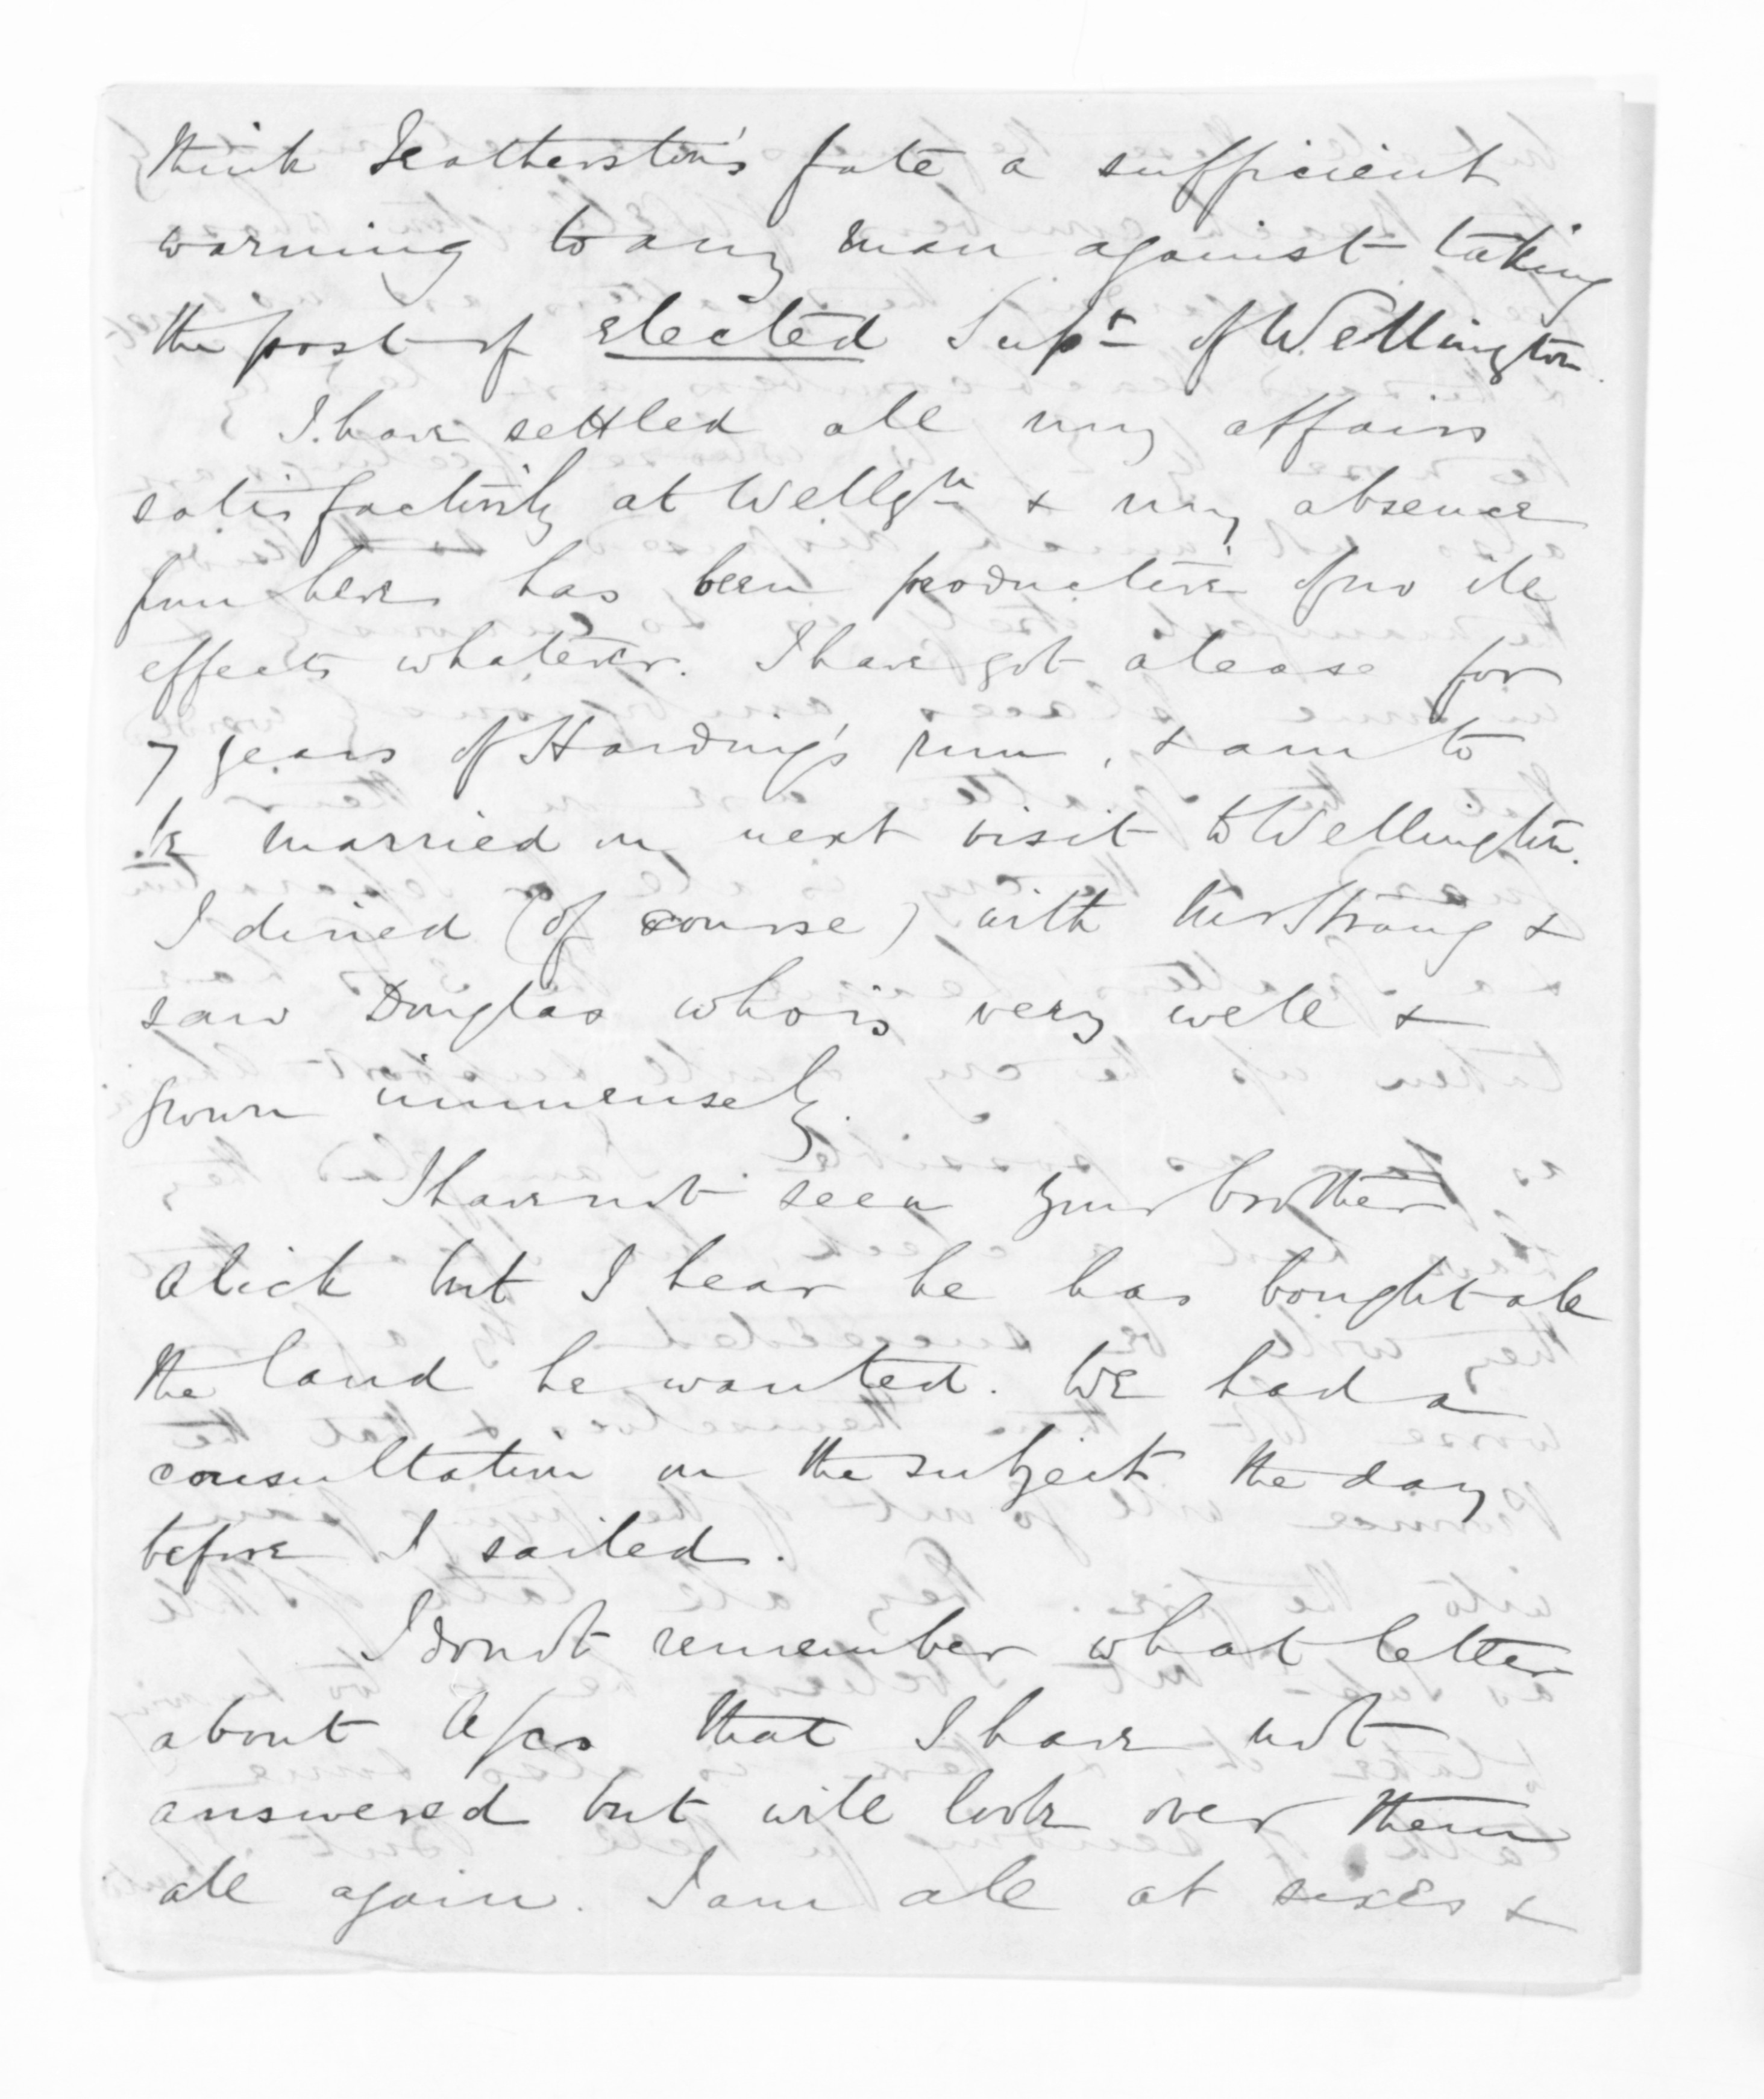 think Featherston's fate a sufficient
warning to any man against taking
the post of elected Supt of Wellington.
I have settled all my affairs
satisfactorily at Wellgtn & my absence
from here has been productive of no ill
effects whatever. I have got a lease for
7 years of Harding's run, & am to
be married on next visit to Wellington.
I dined (of course) with the Strang &
saw Douglas who is very well &
grown immensely.
I have not seen your brother
Alick but I hear he has bought all
the land he wanted. We had a
consultation on the subject the day
before I sailed.
I do not remember what letter
about that I have not
answered but will look over them
all again. I am all at sixes &